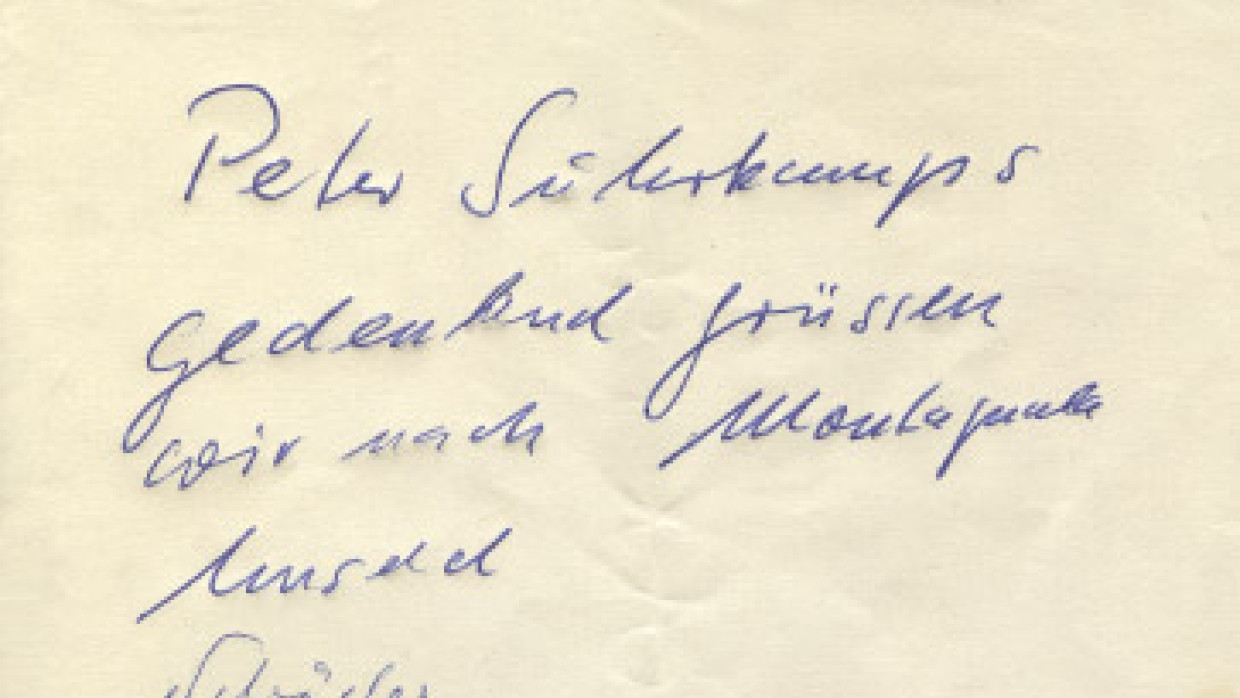 Peter Suhrkamps
gedenkend grüssen
wir nach Montagnola
Unseld
Schröder